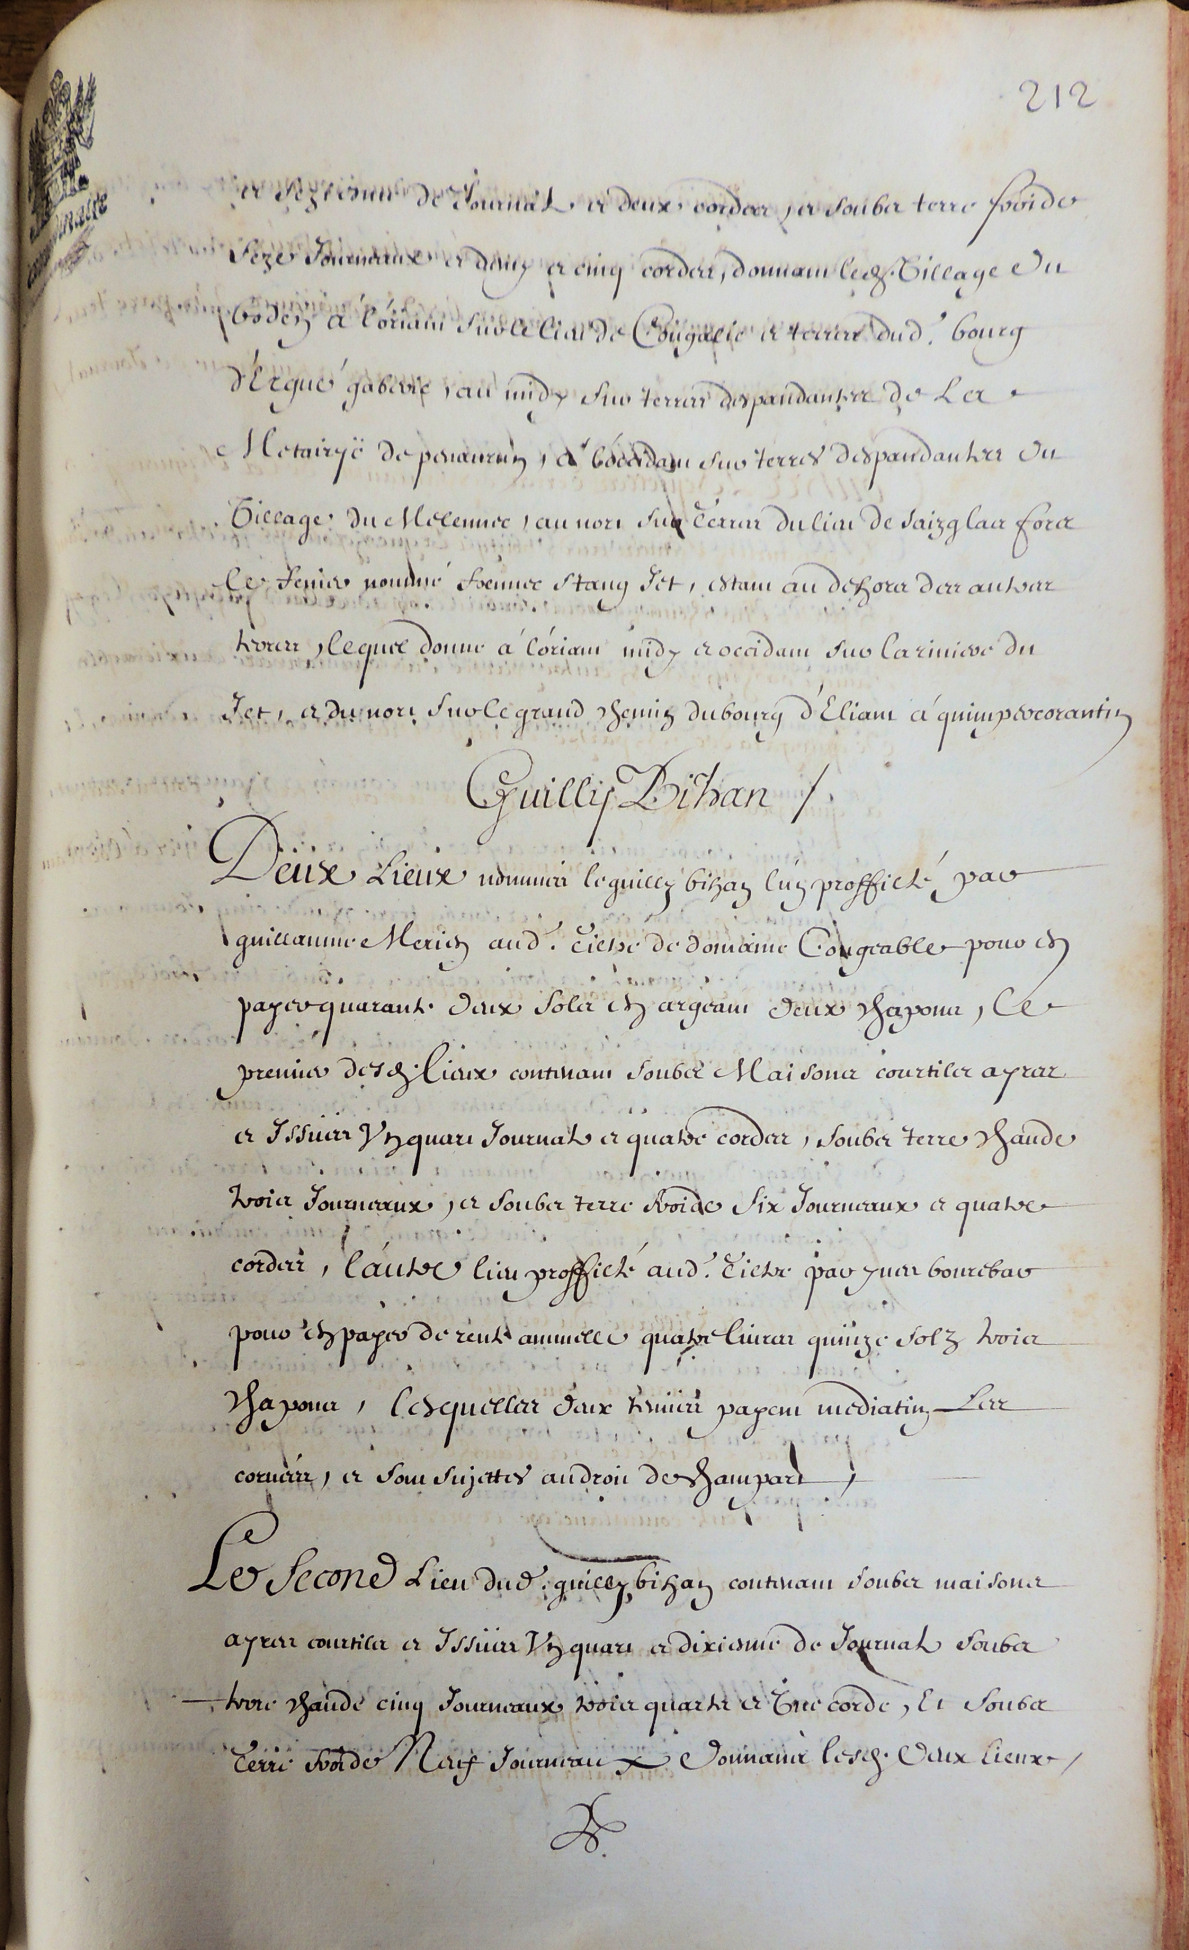 212
et seziesme de Journal et deux cordes, et soubz terre froide
seze Journeaux et demy et cinq cordes, donnant led. Village du
boden à l'oriant sur le lieu de Congallic et terres dud. bourg
d'Ergué gaberic, au midy sur terres despandantes de La
Metairye de penanrun, à l'occidant sur terres despandantes du
Village du Melennec, au nort sur terres du lieu de Saizglas fors
le fenier nommé foennec Stang Jet, estant au dehors des autres
terres, lequel donne à l'oriant midy et occidant sur la riniere du
Jet, et du nort sur le grand chemin du bourg d'Eliant à quimpercorantin
Guilly Bihan /.
Deux Lieux nommés le guilly bihan l'un profficté par
guillaume Merien aud. Tiltre de domaine Congeable pour en
payer quarante deux solz en argeant deux chapons, Le
premier desd. lieux contenant soubz Maisons courtils ayres
et Issües Un quart Journal et quatre cordes, soubz terre chaude
trois Journeaux, et soubz terre froide six Journeaux et quatre
cordes, l'autre lieu proffité aud. Tiltre par yues bourebar
pour en payer de rente annuelle quatre liures quinze solz trois
chapons, lesquelles deux tenües payent mediatin Les
corvées, et sont sujettes au droit de champart,
Le Second Lieu dud. guilly bihan contenant soubz maisons
ayres courtils et Issües Un quart et dixiesme de Journal soubz
terre chaude cinq Journeaux trois quarts et Une corde, Et soubz
Terre froide Neuf Journeaux Donnants lesd. Deux Lieux /